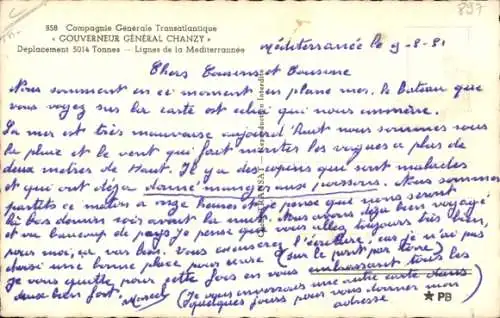 893
858 Compagnie Générale Transatlantique
« GOUVERNEUR GÉNÉRAL CHANZY »
Déplacement 5014 Tonnes — Lignes de la Méditerrannée
Méditerranée le 9-8-51
Chers Cousins et Cousine
Nous sommont en ci moment en plaine mer. le bateau que
vous voyez sur la carte est celui qui nous emmène.
La mer est très mauvaise aujourd'huit nous sommes sous
la pluie et le vent qui fait monter les vagues a plus de
deux metres de Haut. Il y a des copins qui sont malades
et qui ont déja donné manger aux poissons. Nous sommes
partits ce matin a onze heures et je pense que nous seront
la bas demain soir avant la nuit. Nous avons déja beau voyagé
et vu beaucoup de pays. Je pense que vous allez toujours très bien,
pour moi, ça va bien. Vous excuserez l'écriture, car je n'ai pas
choisi une bonne place pour écrire (sur le pont par terre)
Je vous quitte pour cette fois en vous embrassant tous les
deux bien fort. Marcel (Je vous envairons une autre carte dans
quelques jours pour vous donner mon
adresse
Reproduction Interdite
★ PB